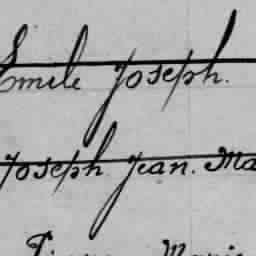 Emile Joseph.
Joseph Jean. Ma
Marie